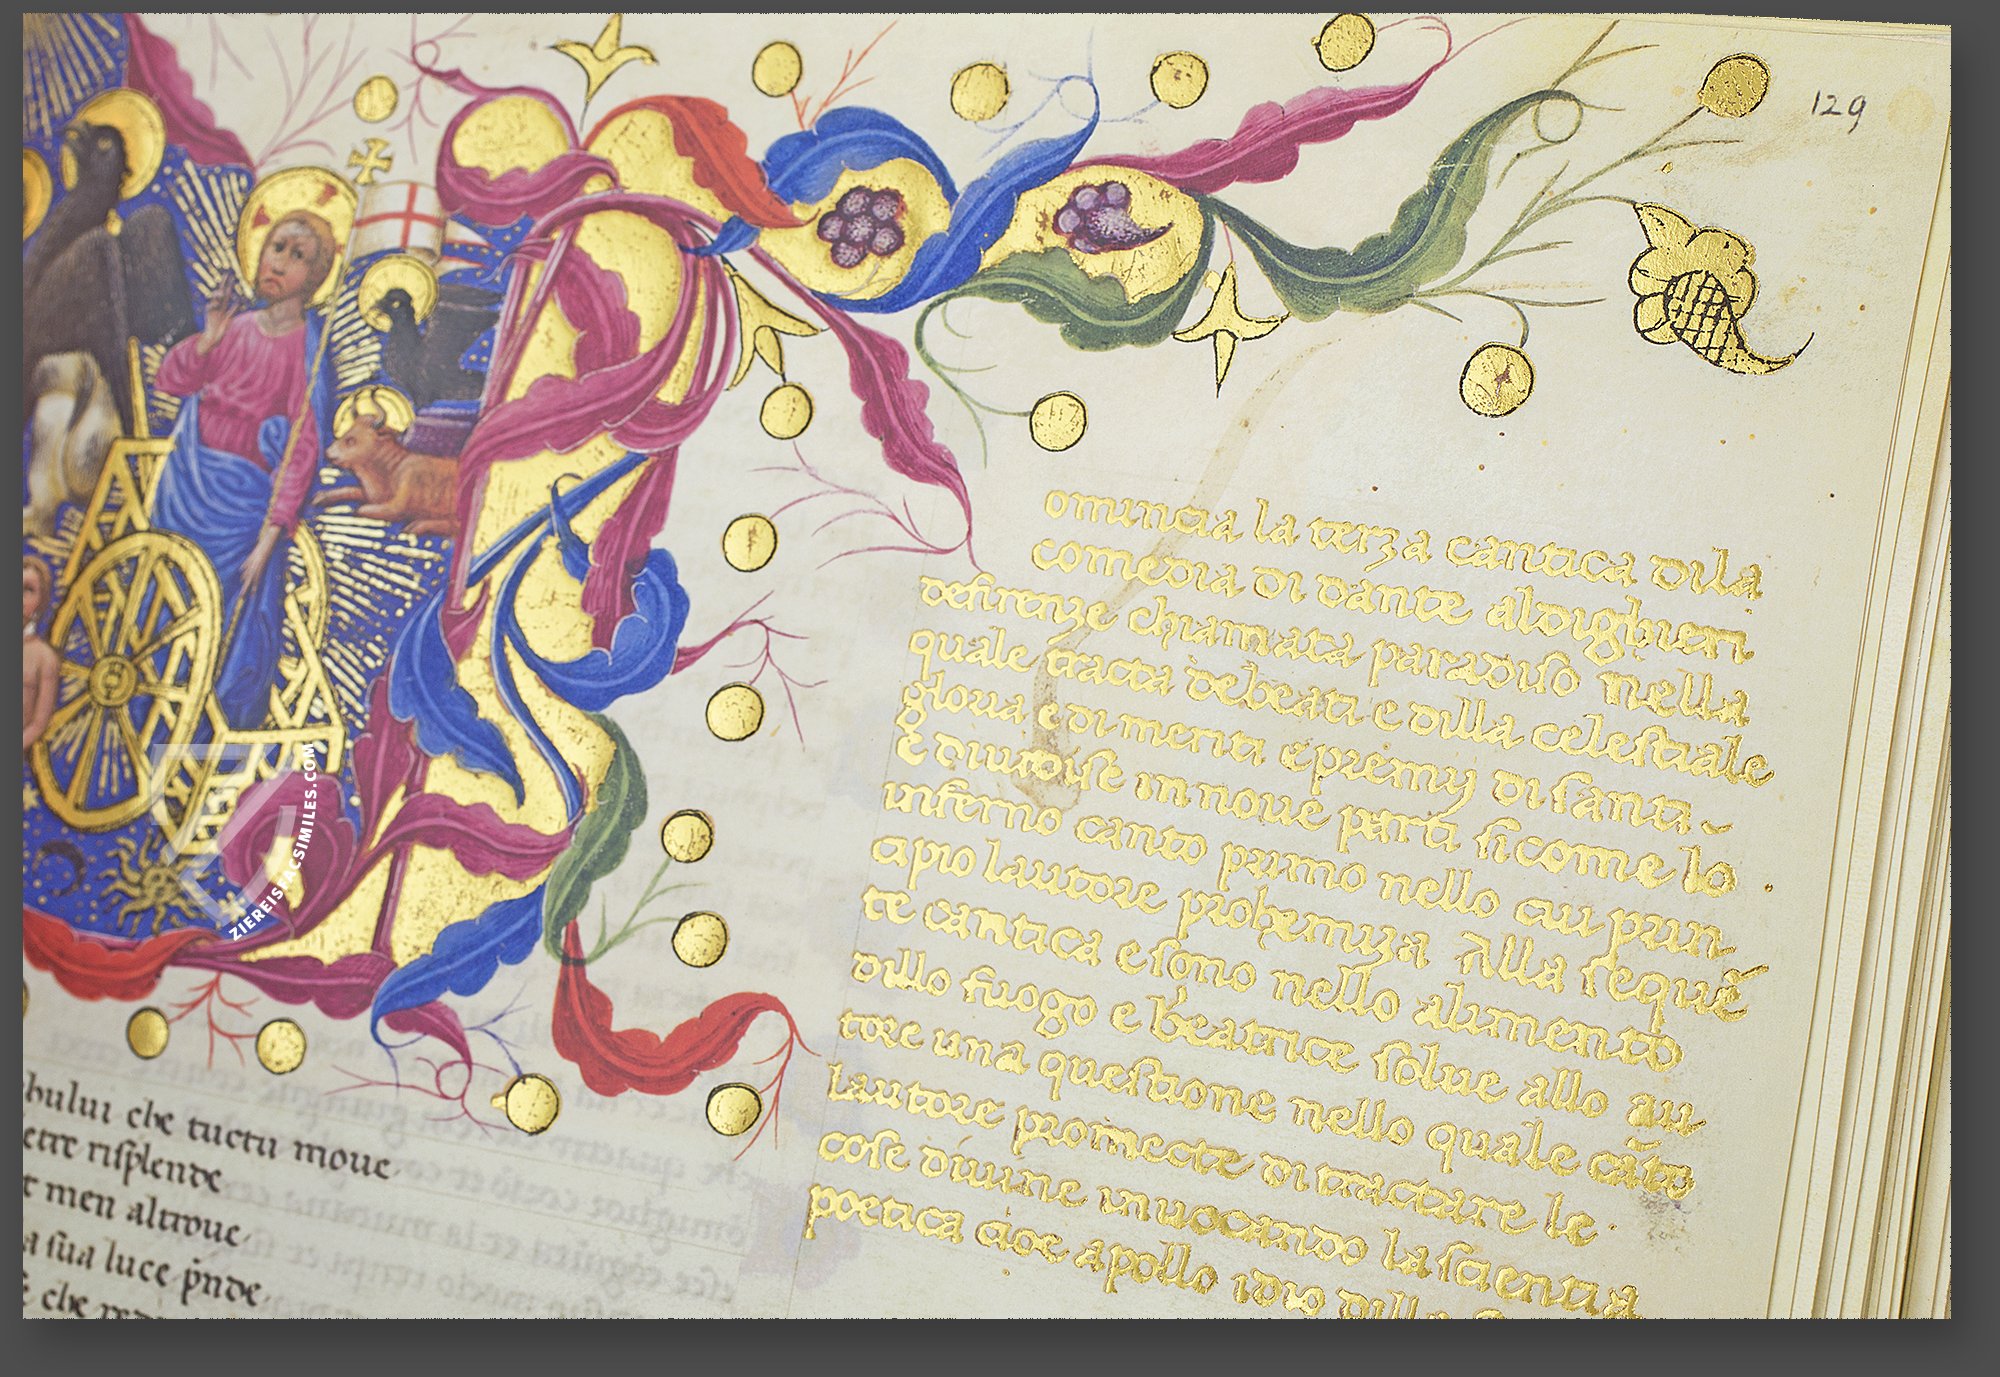 129
omincia la terza cantica dila
comedia di dante aldighieri
defirenze chiamata paradiso nella
quale tracta debeati e dilla celestiale
gloria e di meriti e premij di santi
E diuidise in noue parti sicome lo
inferno canto primo nello cui prin
cipio lautore prohemiza Alla seque
te cantica e sono nello alimento
dillo fuogo e beatrice solue allo au
tore una questione nello quale cāto
lautore promecte di tractare le
cose diuine inuocando la scientia
poetica cioe apollo idio dilla
hului che tuctu moue
ette risplende
men altroue
a sua luce p̄nde
che
ZIEREISFACSIMILES.COM